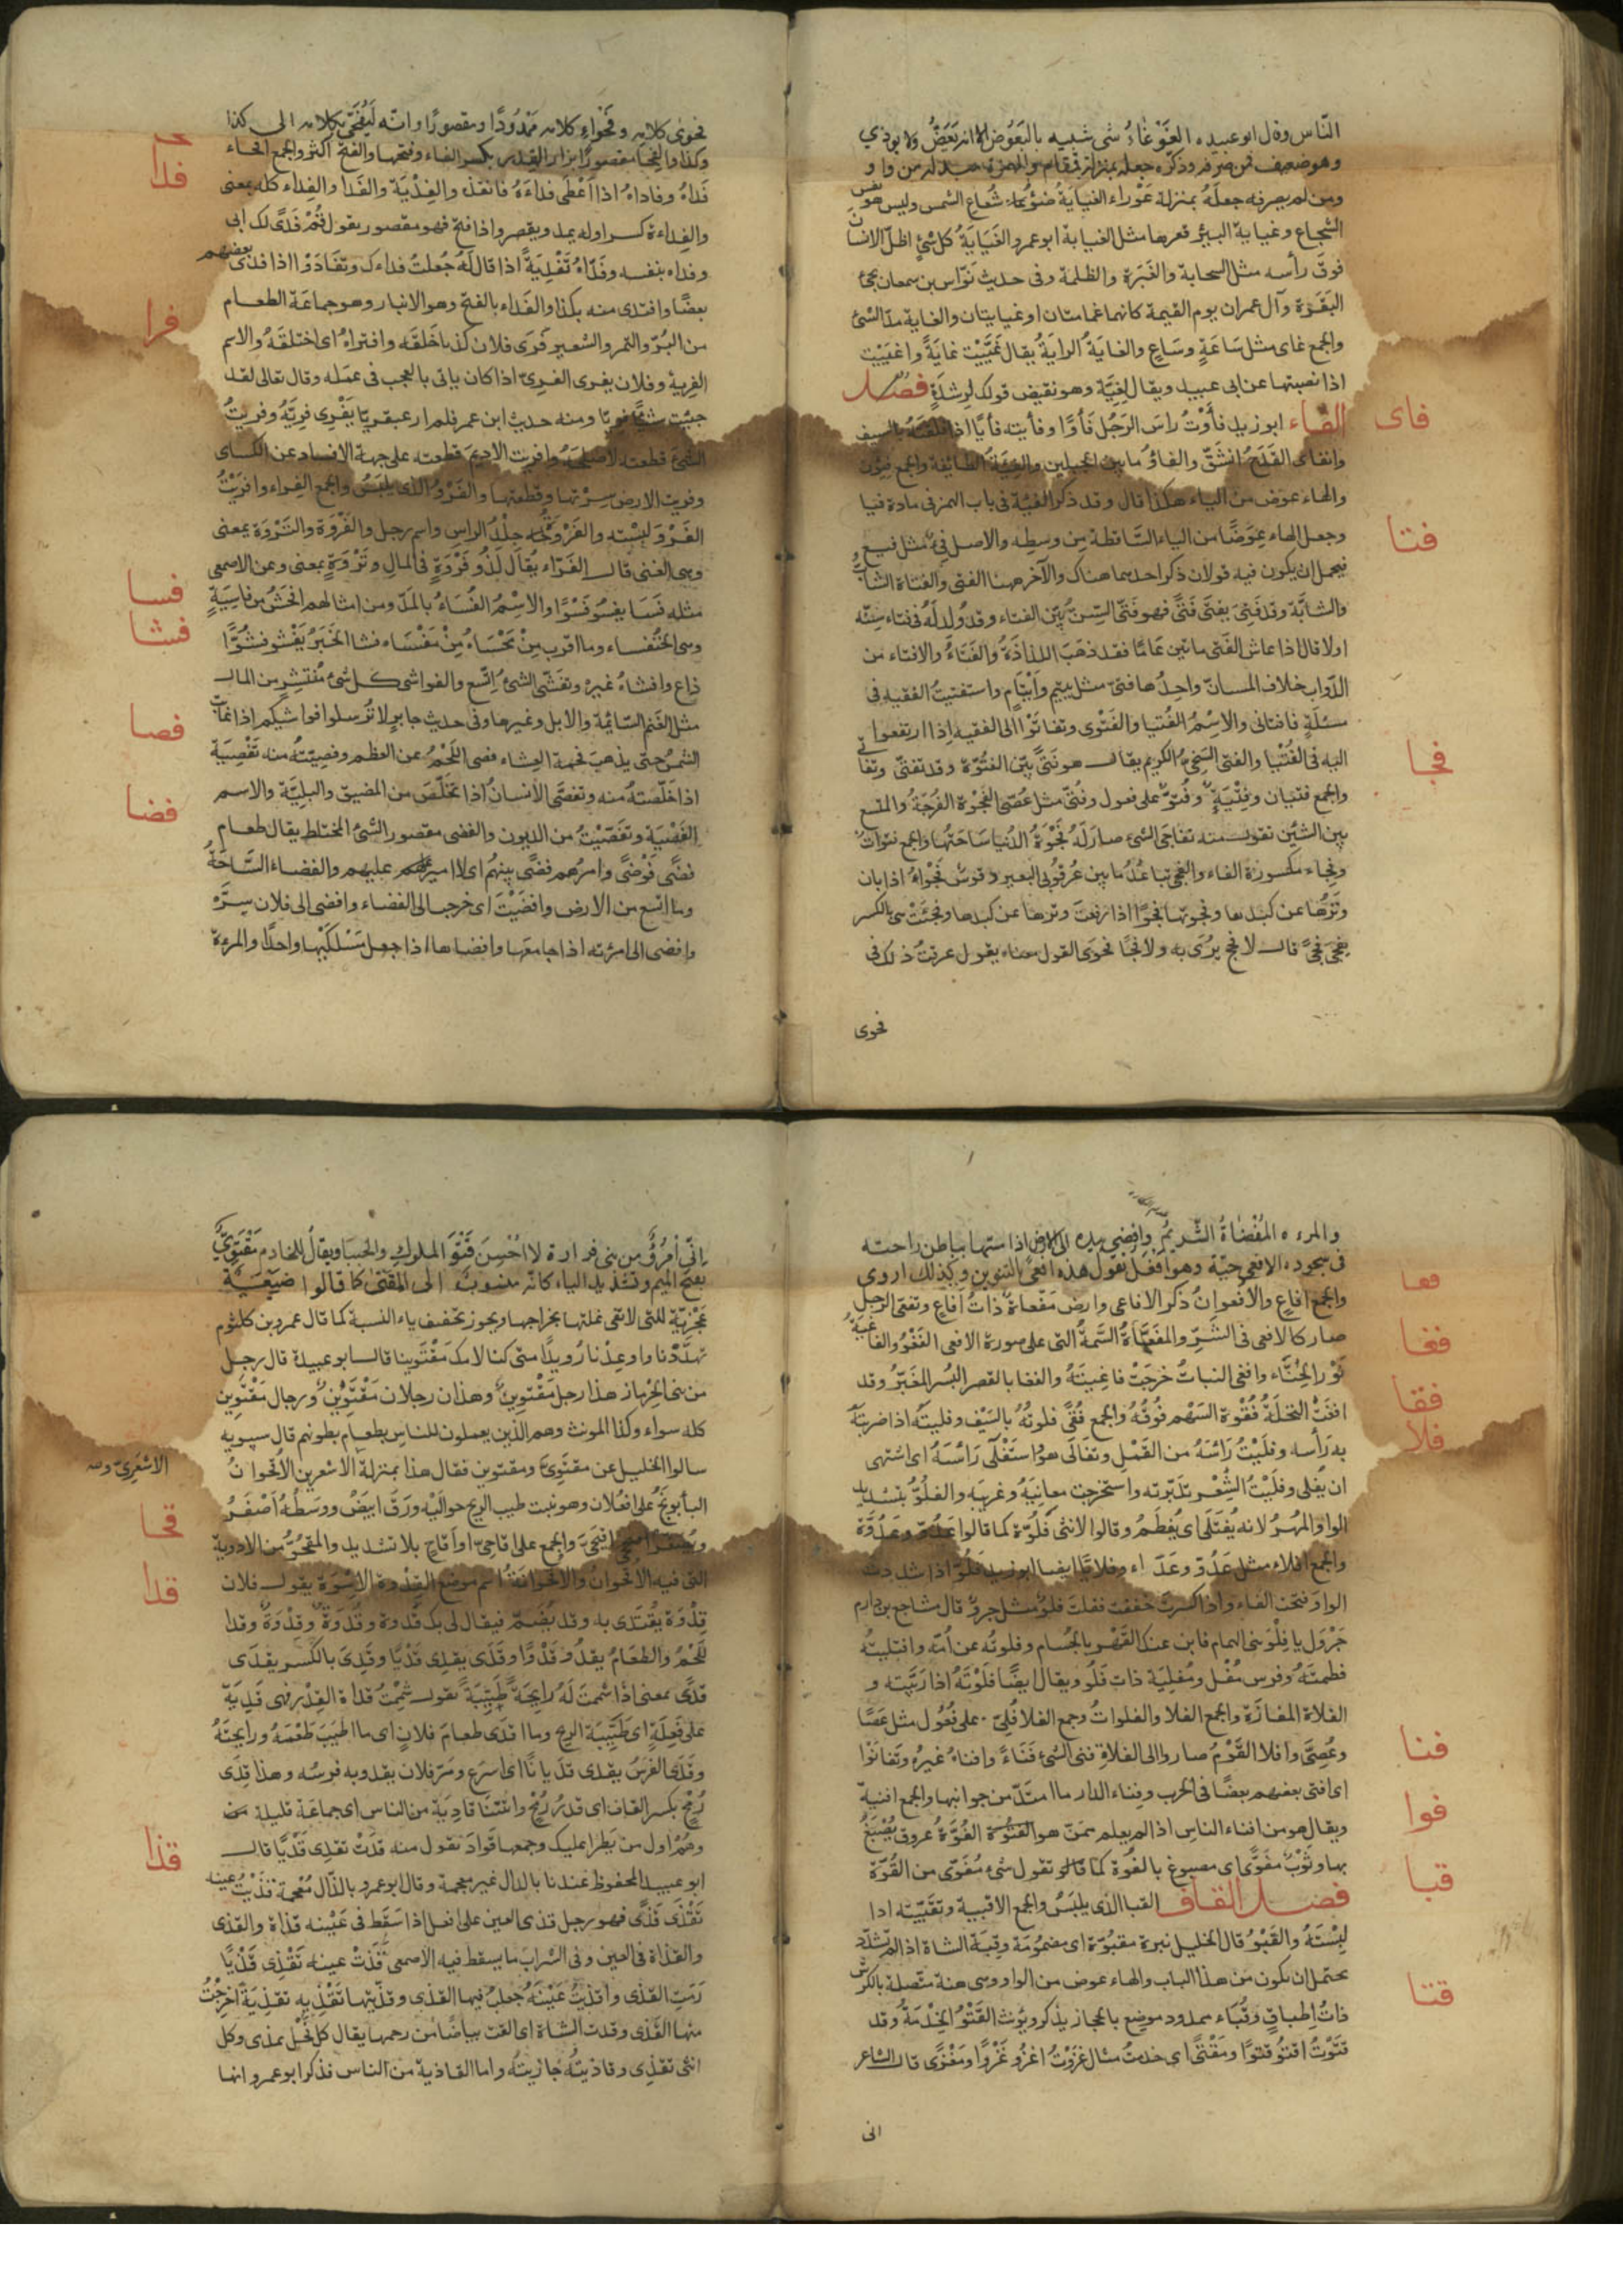 الناس وقال ابو عبيدة الغَوْغاءُ شى شبيه بالبَعُوض الا انه يَعَضُّ ولا يوذي
وهو ضعيف فمن صرفه وذكره جعله بمنزلة قمقام والهمزة مبدلة من واو
ومن لم يصرفه جعلَهُ بمنزلة عَوْراء الغيايَةُ ضوْءُ شُعاع الشمس وليس هو نفس
الشعاع وغيابة البئر قعرها مثل الغيابة ابو عمرو الغَيَايَةُ كل شئٍ اظلّ الانسان
فوقَ رأسه مثل السحابة والغَبَرَة والظلمة وفى حديث نَوّاس بن سمعان تجئ
البَقَرَة وآل عمران يوم القيمة كانهما غمامتان او غيايتان والغاية مدَا الشئ
والجمع غاى مثل سَاعَةٍ وسَاعٍ والغايَةُ الرايَةُ يقال غَيَّيْت غايَةً واغيَيْت
اذا نصبتها عن ابى عبيد ويقال لِغِيَّة وهو نقيض قولك لِرشدَةٍ فصل
فاى
الفاء ابو زيد فأَوْتُ رأسَ الرَجُل فَأْوًا وفأيته فأيًا اذا فلقتَهُ بالسيف
وانفأى القَدَحُ انشَقّ والفأوُ ما بين الجبلين والفِئَةُ الطائفة والجمع فِئُون
والهاء عوَض من الياء هكذا قال وقد ذكر الفئة فى باب الهمز فى مادة فيا
فتا
وجعل الهاء عِوَضًا من الياء السَّاقطة مِن وسطه والاصل فئ مثل فيع
فيحمل ان يكون فيه قولان ذكر احدهما هناك والآخر ههنا الفتى والفتاة الشابُّ
والشابَّة وقد فَتِىَ يفتَى فَتًى فهو فَتِىّ السّنِّ بَيّن الفتاء وقد وُلد لَهُ فى فتاء سِنّه
اولاد قال اذا عاش الفَتى مائتين عَامًا فقد ذهَبَ اللذاذَةُ والفَتاءُ والافتاء من
الدّواب خلاف المسانّ واحِدُها فتىّ مثل يتيم وأيْتامٍ واستفتيتُ الفقيه فى
مسئلةٍ فافتانى والاسْمُ الفُتْيا والفَتْوى وتفاتَوْا الى الفقيه اِذا ارتفعوا
فجا
اليه فى الفُتْيا والفتى السَخِىُّ الكريم يقال هو فَتًى بَيّن الفتُوّة وقد تفتّى وتفاتى
والجمع فتيان وفِتْيَةٍ وفُتوّ على فعول وفُتىّ مثل عُصىّ الفَجْوَة الفُرجَةُ والمتسع
بين الشيئين تقول منه تفاجَى الشئ صار لَهُ فَجْوَةُ الدُنيا سَاحَتُها والجمع فجوات
وفِجاء مكسورة الفاء والفجى تباعُدُ ما بين عُرقُوبَى البعير وقوسٌ فَجْواءُ اذا بان
وتَرُها عن كبدها وفجوتها فجوًا اذا رفعت وترها عن كبدها وفجئَتْ هى بالكسر
يَفجَى فَجًى قال لا فحج يُرَى به ولا فجًا فحوَى القول معناه يقول عرفتُ ذلك فى
فحوى
فحوى كلامه وفَحْوَاءِ كلامه مَمْدُودًا ومقصورًا وانّه لَيُفَحّى بكلامه الى كذا
وكذا والفَحَا مقصورًا ابزار القِدْر بكسر الفاء وفتحها والفتح اكثر والجمع افحاء
فدا
فَداهُ وفاداهُ اذا اعْطَى فداءَهُ فانقذه والفِدْيَة والفَدا والفِداء كله بمعنى
والفداء كسر اوله يمد ويقصر واذا فتح فهو مقصور يقول قُمْ فَدًى لك ابى
وفداه بنفسه وفَدّاهُ تَفْدِيَةً اذا قال لَهُ جُعِلتُ فداءك وتفَادَوْا اذا فدَى بعضهم
فرا
بعضًا وافتدى منه بكذا والفَداء بالفتح وهو الانبار وهو جماعَة الطعام
من البُرّ والتمر والشعير فَرَى فلان كذبًا خَلَقَه وافتراهُ اى اختلقَهُ والاسم
الفِرية وفلان يفرى الفرىّ اذا كان ياتى بالعجب فى عمَله وقال تعالى لقد
جئتِ شيئًا فريًا ومنه حديث ابن عمر فلم ار عبقريًا يَفْرى فرِيَّهُ وفريتُ
الشئ قطعته لاصلحَهُ وافريت الاديم قطعته على جهة الافساد عن الكسائى
وفريت الارض سِرْتها وقطعتها والفَرْوُ الذى يلبَسُ والجمع الفراء وافتريْتُ
الفَرْوَ لبسْته والفَرْوَةُ جلْدُ الراس واسم رجل والفَرْوَة والثَرْوَة بمعنى
وهى الغنى قال الفَرّاء يُقال لَذُو فَرْوَةٍ فى المالِ وثَرْوَةٍ بمعنى وعن الاصمعى
فسا
مثله فَسَا يفسُو فَسْوًا والاسْمُ الفُسَاءُ بالمدّ ومن امثالهم افحَشُ من فاسيَةٍ
فشا
وهى الخنفساء وما اقرب مِنْ مَحْسَاهُ مِنْ مَفْسَاه فشا الخَبَرُ يَفْشو فشُوًّا
ذاعَ وافشاهُ غيرهُ وتفَشّى الشئ اتّسع والفواشى كل شئ مُنتشِرٍ من المال
فصا
مثل الغَنم السّائمة والابل وغيرها وفى حديث جابرٍ لا تُرسلوا فواشيكم اذا غابت
الشمسُ حتى يذهبَ فحمة العِشاء فصى اللَحْمُ عن العظم وفصيّتهُ منه تَفْصِيَة
فضا
اذا خَلّصتهُ منه وتفصَّى الانسانُ اذا تخَلَّصَ من المضيق والبليَّة والاسم
الفَصْيَة وتفَصّيْتُ من الديون والفضى مقصور الشئ المختلط يقال طعام
فضًى فَوْضًى وامرُهم فضًى بينهُم اى لا امير عليهم والفضاء السَّاحَةُ
وما اتسع من الارض وافضَيْتَ اى خرجت الى الفضاء وافضى الى فلان سِرَّه
وافضى الى امرئته اذا جامعَها وافضاها اذا جعل مَسْلَكَيْها واحدًا والمرءة
والمرءه المُفْضاةُ الشّريمُ وافضى بيده الى الارض اذا مسّها بباطن راحته
فعا
فى سجوده الافعى حيّة وهو افعَل يقول هذه افعًى بالتنوين وكذلك اروى
والجمع افاعٍ والافعوانُ ذكر الافاعى وارض مَفعاةٌ ذاتُ افاعٍ وتفعّى الرجل
فغا
صار كالافعى فى الشَّرِّ والمفَعّاةُ السَّمةُ التى على صورة الافعى الفَغْوُ والفاغيَةُ
نَوْر الحِنّاء وافغى النباتُ خرجَتْ فاغيتَهُ والفغا بالقصر البُسر المغبّرُ وقد
فقا
افغَت النخلَة فُقْوَة السَهْم فُوقُهُ والجمع فُقًى فلوتُهُ بالسَيْف وفليتُه اذا ضربتَهُ
فلا
به رَأسه وفلَيْتُ رَأسَهُ من القَمْل وتفَالَى هو استَفْلَى رَأسَهُ اى اشتهى
ان يُفلى وفلَيْتُ الشّعْر تدَبّرته واستخرجت معانِيَهُ وغريبَه والفلُوُّ بتشديد
الواو المُهر لانه يُفتَلَى اى يُفطَم وقالوا للانثى فلُوّة كما قالوا عَدُوّ وعَدُوَّة
والجمع افلاء مثل عَدُوّ وعَدَاء وفلاوًا ايضا ابو زيد فلُوّ اذا شددت
الواو فتحت الفاء واذا كسرت خففت فقلت فلْوٌ مثل جروٌ قال مشاجع بن دارم
جَرْوَل يا فِلْوَ بنى الهمام فاين عنك القَهْر بالحُسَام وفلوتُه عن امّه وافتليتُه
فطمتَهُ وفرس مُفْل ومُفلِيَة ذات فَلُو ويقال ايضًا فلَوْتَهُ اذا رَبَّيته و
الفلاة المفازَة والجمع الفلا والفلواتُ وجمع الفلا فُلِىّ على فُعُول مثل عَصًا
فنا
وعُصِىّ وافلا القَوْمُ صاروا الى الفلاةِ فنى الشئ فَنَاءً وافناهُ غيرُه وتفانَوْا
اى افتى بعضهم بعضًا فى الحرب وفناء الدار ما امتَدّ من جوانبها والجمع افنية
فوا
ويقال هو من افناء الناسِ اذا لم يعلم ممّن هو الفُوّةُ عروق يُصْبَغُ
قبا
بها وثَوْبٌ مفَوّى اى مصبوغ بالفُوّة كما قالو تقول شئ مُقوّى من القُوّة
فصل القاف القبا الذى يلبَسُ والجمع الاقبية وتقَبّيته اذا
لبِسْتَهُ والقَبْوُ قال الخليل نبرة مقبُوّة اى مضمُومَة وقِبَة الشاة اذا لم تشدّد
قتا
يحتمل ان تكون من هذا الباب والهاء عوض من الواو وهى هنة متّصلة بالكرش
ذاتُ اطباقٍ وقُباء ممدود موضع بالحجاز يذكر ويؤنث القَتْو الخِدْمَةُ وقد
قتوْتُ اقتُو قتوًا ومَقْتًى اى خدمتُ مثال غزوْتُ اغزُو غَزْوًا ومَغْزًى قال الشاعر
انى
انّى امْرُؤٌ من بنى فزارة لا احْسِنُ قَتْوَ الملوكِ والخبَبا ويقالُ للخادم مَقْتَوِىٌّ
بفتح الميم وتشديد الياء كانه منسُوبٌ الى المَقْتى كما قالوا ضَيعَة
عَجْزِيّة للتى لا تفى غلتها بخراجها ويجوز تخفيف ياء النسبة كما قال عمرو بن كلثوم
تهدّدْنا واوعِدْنا رُويدًا متى كنا لامك مَقْتَوينا قال ابو عبيدة قال رجل
من بنى الحرماز هذا رجل مَقْتوِينٌ وهذان رجلان مَقْتَوِين ورجال مَقْتَوِين
كله سواء وكذا المؤنث وهم الذين يعملون للناس بطعام بطونهم قال سيبويه
الاشعَرِىّ
سالوا الخليل عن مقتوِىّ ومقتوين فقال هذا بمنزلة الاشعرين الاُقحُوانُ
قحا
البابُونَجُ على افعُلان وهو نبت طيب الريح حوالَيْه ورَقٌ ابيَضُ ووسَطُه أَصْفَرُ
ويُصَغر اقيحىّ والجمع على اقاحِىّ واَقاحٍ بلا تشديد والمقحُوُّ من الادوية
قدا
التى فيه الاقحوانُ والاقحوانة اسم موضع القِدْوة الاسْوَة يقول فلان
قِدْوَة يُقتَدى به وقد يُضَمّ فيقال لى بك قُدوة وقُدْوَةٌ وقِدْوَةٌ وقدا
للَحْمُ والطعَامُ يقدُو قَدْوًا وقَدَى يقدِى قَدْيًا وقَدِىَ بالكسر يقدَى
قدًى بمعنى اذا شَمِمتَ لَهُ رايحَةً طَيّبَةً تقول شَمِمْتُ قدَاة القِدْر فهى قَدِيَة
على فَعِلَةٍ اى طَيِّبَة الريح وما اقدَى طعامَ فلانٍ اى ما اطيَبَ طَعْمَهُ ورايحَتَهُ
وقَدَى الفرسُ يقدى قدَيانًا اى اسْرَع ومَرّ فلان يقدو به فرسُه وهذا قِدَى
رُمْحٍ بكسر القاف اى قدرُ رُمْحٍ واتتنَا قادِيَة من الناس اى جماعَة قليلة من
قذا
وهُمْ اول من يَطرا عليك وجمعها قَوادٍ تقول منه قدَتْ تقدِى قَدْيًا قال
ابو عبيد المحفوظ عندنا بالدال غير معجمة وقال ابو عمرو بالذّال مُعْجمة قَذِيَتْ عينه
تَقْذَى قَذًى فهو رجل قذى العين على افعل اذا سَقَط فى عَيْنه قذاة والقذى
والقَذاة فى العين وفى الشَراب ما يسقط فيه الاصمعى قَذَتْ عينه تَقْذِى قَذْيًا
رَمَتِ القذَى واقذيْتُ عَيْنَهُ جَعلتُ فيها القذَى وقذّيتها تَقْذِيه تقذِيَة اخرَجْتُ
منها القَذَى وقذت الشاة اى القت بياضًا من رحمها يقال كل فحْل يمذى وكل
انثى تقذِى وقاذيتُه جازيتُه واما القاذية من الناس فذكر ابو عمرو انها